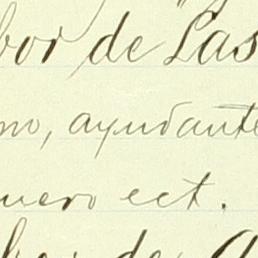 bor de Las
no, ayudante
nero ect.
bor de